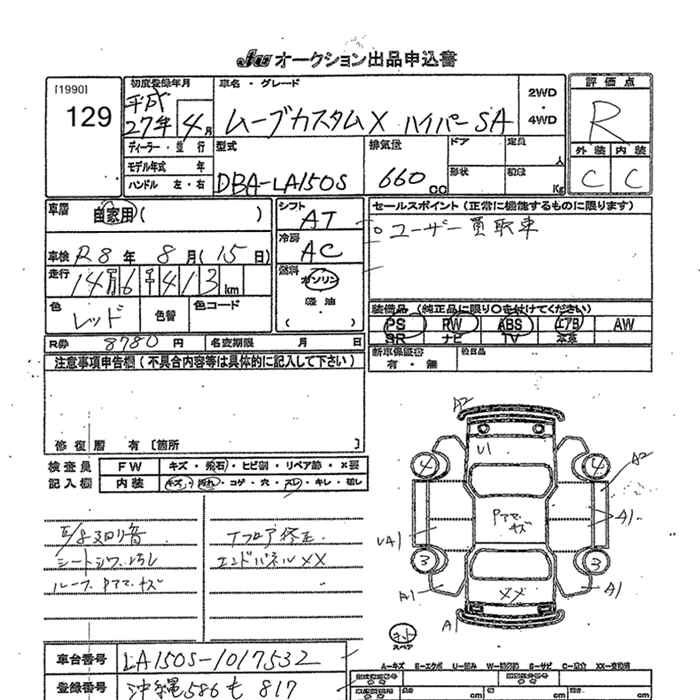 JU オークション出品申込書
[1990]
129
初度登録年月
平成
27年4月
車名・グレード
ムーブカスタムX ハイパーSA
2WD
・
4WD
評価点
R
ディーラー・並行
モデル年式 年
ハンドル 左・右
型式
DBA-LA150S
排気量
660 CC
ドア
形状
定員
人
積載
Kg
外装 内装
C C
車歴
自家用( )
シフト
AT
セールスポイント (正常に機能するものに限ります)
ユーザー買取車
車検 R8年 8月(15日)
冷房
AC
走行
14万6千413km
燃料
ガソリン
軽油
( )
色
レッド
色替
色コード
装備品 (純正品に限り○を付けてください)
PS PW ABS エアB AW
SR ナビ TV 本革
R券 8780円
名変期限 月 日
新車保証書
有・無
注意事項申告欄(不具合内容等は具体的に記入して下さい)
修復歴 有〔箇所 〕
検査員
記入欄
FW
キズ・飛石・ヒビ割・リペア跡・×要
内装
キズ・汚れ・コゲ・穴・スレ・キレ・破レ
シートシワ、汚レ
ルーフ PアマザズT
エンドパネルXX
A2
U1
4
4
A2
A1
A1
3
3
A1
A1
XX
A1
スペア
車台番号 LA150S-1017532
登録番号 沖縄586も817
A-キズ E-エクボ U-凹み S-サビ XX-交換済
cm
cm